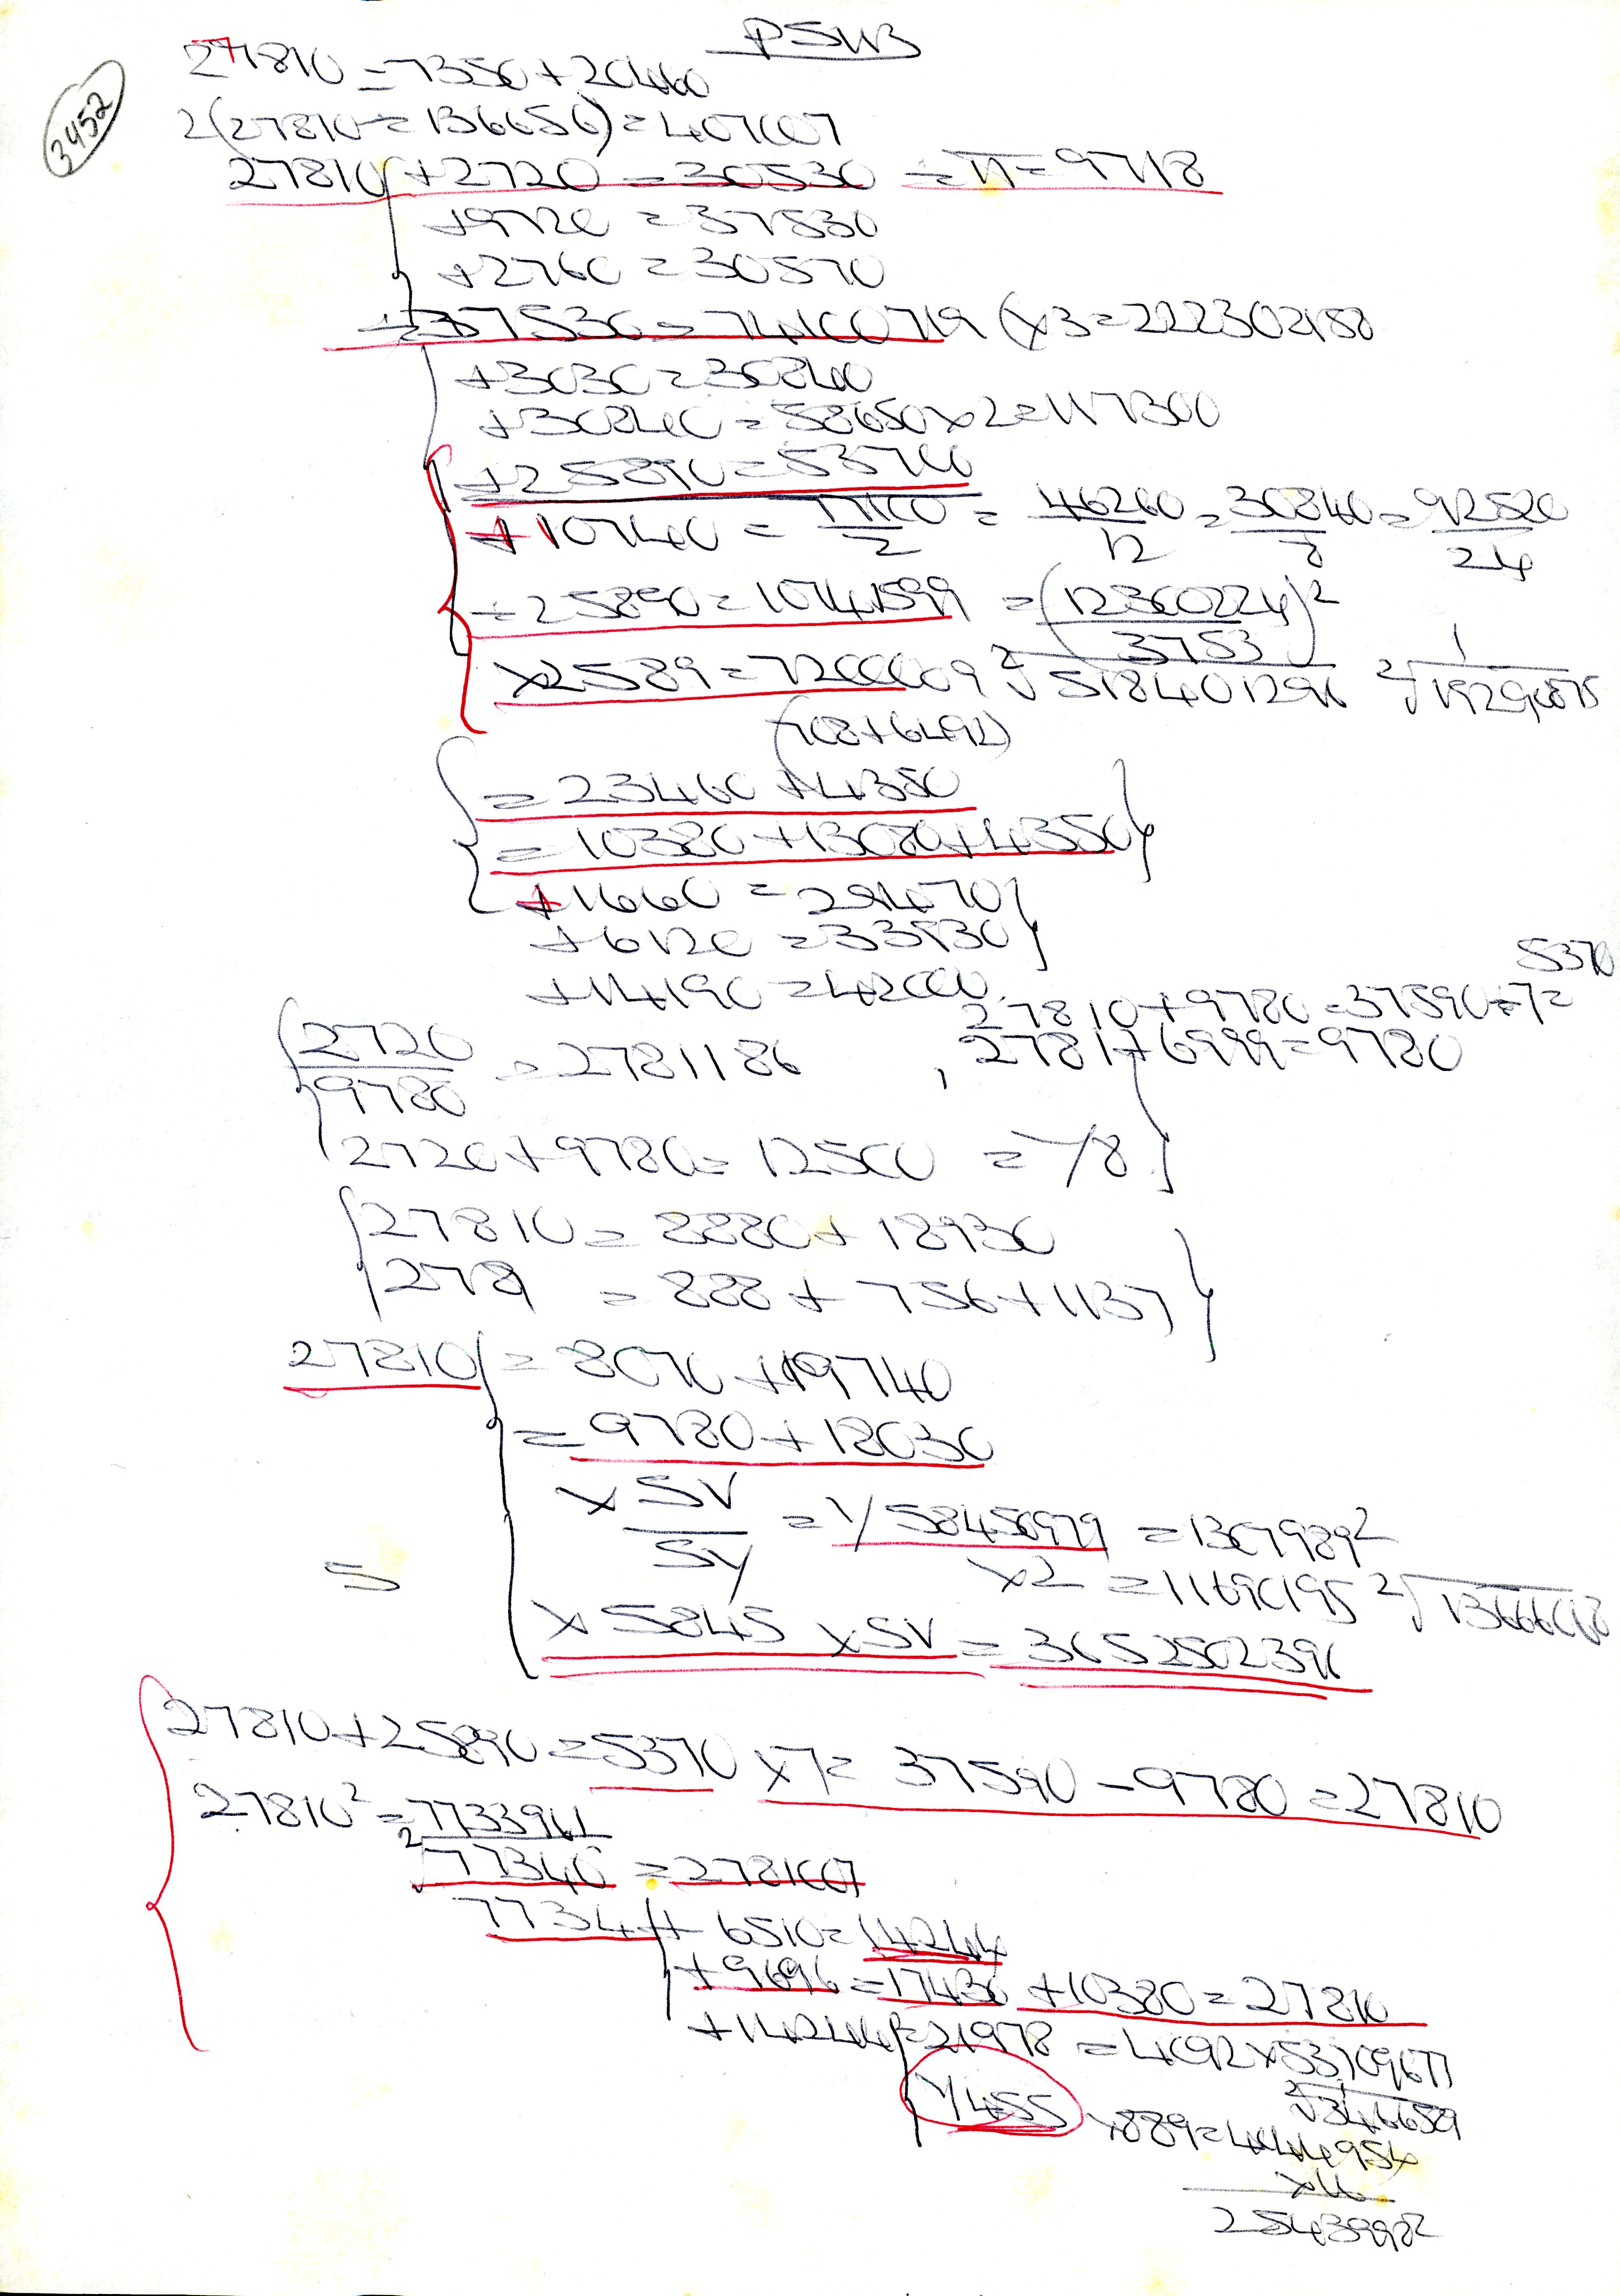 PSW3
3452
27810 = 7350 + 20460
2(27810 ÷ 136656) = 407007
27810 + 2720 = 30530 ÷ π = 9718
+ 9720 = 37530
+ 2760 = 30570
÷ 37530 = 74100719 (×3 = 222302158
+ 3030 = 30840
+ 30840 = 58650 × 2 = 117300
+ 25890 = 53700
+ 10740 = 77100/2 = 46260/12 = 30840/8 = 92520/24
÷ 25890 = 10741599 = (12360224/3753)²
× 2589 = 7200009 ²√518401296 ²√
(708 + 6492)
= 23460 + 4350
= 10380 + 13080 + 4350
+ 1660 = 29470
+ 6120 = 33930
+ 14190 = 42000
27810 + 9780 = 37590 ÷ 7 = 5370
2720/9780 = 2781186 , 2781 + 6999 = 9780
2720 + 9780 = 12500 = 1/8
27810 = 8880 + 18930
2781 = 888 + 756 + 1137
27810 = 8070 + 19740
= 9780 + 18030
× SV/SY = 1/58456979 = 1307989²
× 2 = 11690195 ²√
= × 5845 × SV = 3652502396
27810 + 25890 = 5370 × 7 = 37590 - 9780 = 27810
27810² = 7733961
²√77340 = 278107
7734 + 6510 = 14244
+ 9696 = 17430 + 10380 = 27810
+ 14244 = 21978 = 4092 × 53709677
1/455 × 889 = 4444954 ²√346659
× 4
2543998²